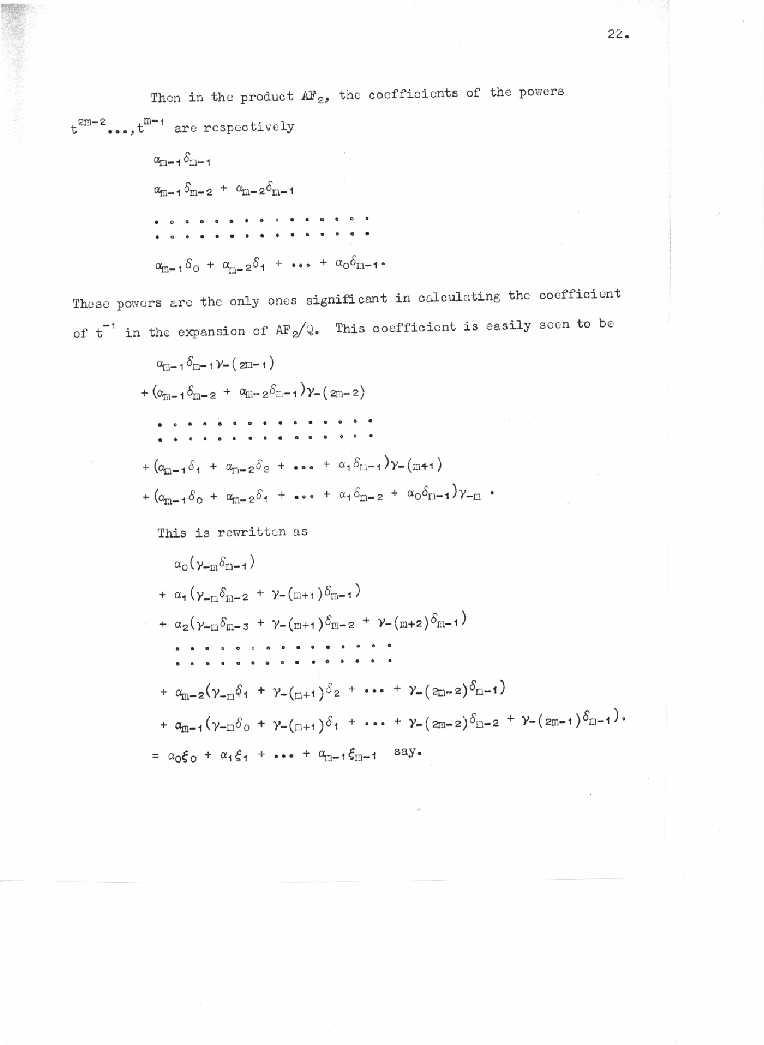 22.
Then in the product AF₂, the coefficients of the powers
t²ᵐ⁻²...,tᵐ⁻¹ are respectively
αₘ₋₁δₘ₋₁
αₘ₋₁δₘ₋₂ + αₘ₋₂δₘ₋₁
. . . . . . . . . . . . . . .
. . . . . . . . . . . . . . .
αₘ₋₁δ₀ + αₘ₋₂δ₁ + ... + α₀δₘ₋₁.
These powers are the only ones significant in calculating the coefficient
of t⁻¹ in the expansion of AF₂/Q. This coefficient is easily seen to be
αₘ₋₁δₘ₋₁γ₋₍₂ₘ₋₁₎
+(αₘ₋₁δₘ₋₂ + αₘ₋₂δₘ₋₁)γ₋₍₂ₘ₋₂₎
. . . . . . . . . . . . . . .
. . . . . . . . . . . . . . .
+(αₘ₋₁δ₁ + αₘ₋₂δ₂ + ... + α₁δₘ₋₁)γ₋₍ₘ₊₁₎
+(αₘ₋₁δ₀ + αₘ₋₂δ₁ + ... + α₁δₘ₋₂ + α₀δₘ₋₁)γ₋ₘ .
This is rewritten as
α₀(γ₋ₘδₘ₋₁)
+ α₁(γ₋ₘδₘ₋₂ + γ₋₍ₘ₊₁₎δₘ₋₁)
+ α₂(γ₋ₘδₘ₋₃ + γ₋₍ₘ₊₁₎δₘ₋₂ + γ₋₍ₘ₊₂₎δₘ₋₁)
. . . . . . . . . . . . . . .
. . . . . . . . . . . . . . .
+ αₘ₋₂(γ₋ₘδ₁ + γ₋₍ₘ₊₁₎δ₂ + ... + γ₋₍₂ₘ₋₂₎δₘ₋₁)
+ αₘ₋₁(γ₋ₘδ₀ + γ₋₍ₘ₊₁₎δ₁ + ... + γ₋₍₂ₘ₋₂₎δₘ₋₂ + γ₋₍₂ₘ₋₁₎δₘ₋₁).
= α₀ξ₀ + α₁ξ₁ + ... + αₘ₋₁ξₘ₋₁ say.